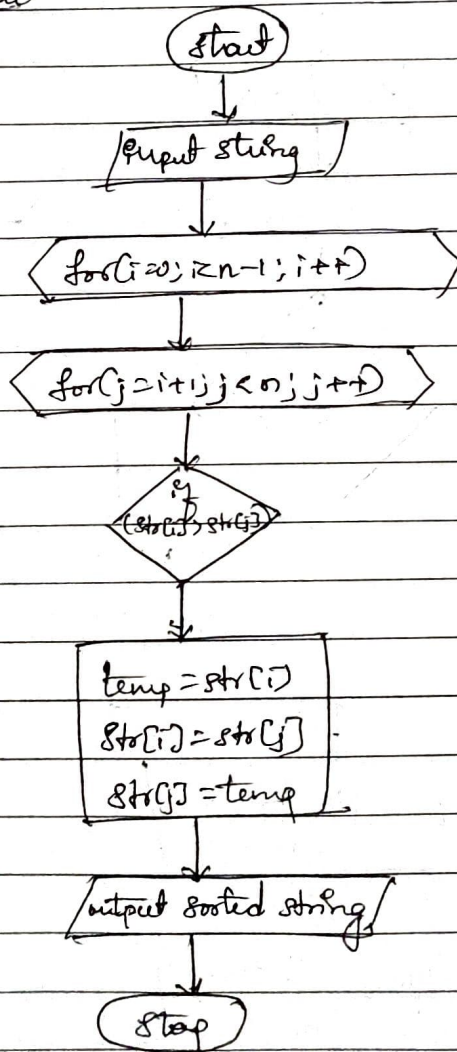 start
input string
for(i=0; i<n-1; i++)
for(j=i+1; j<n; j++)
if
(str[i]>str[j])
temp=str[i]
str[i]=str[j]
str[j]=temp
output sorted string
stop